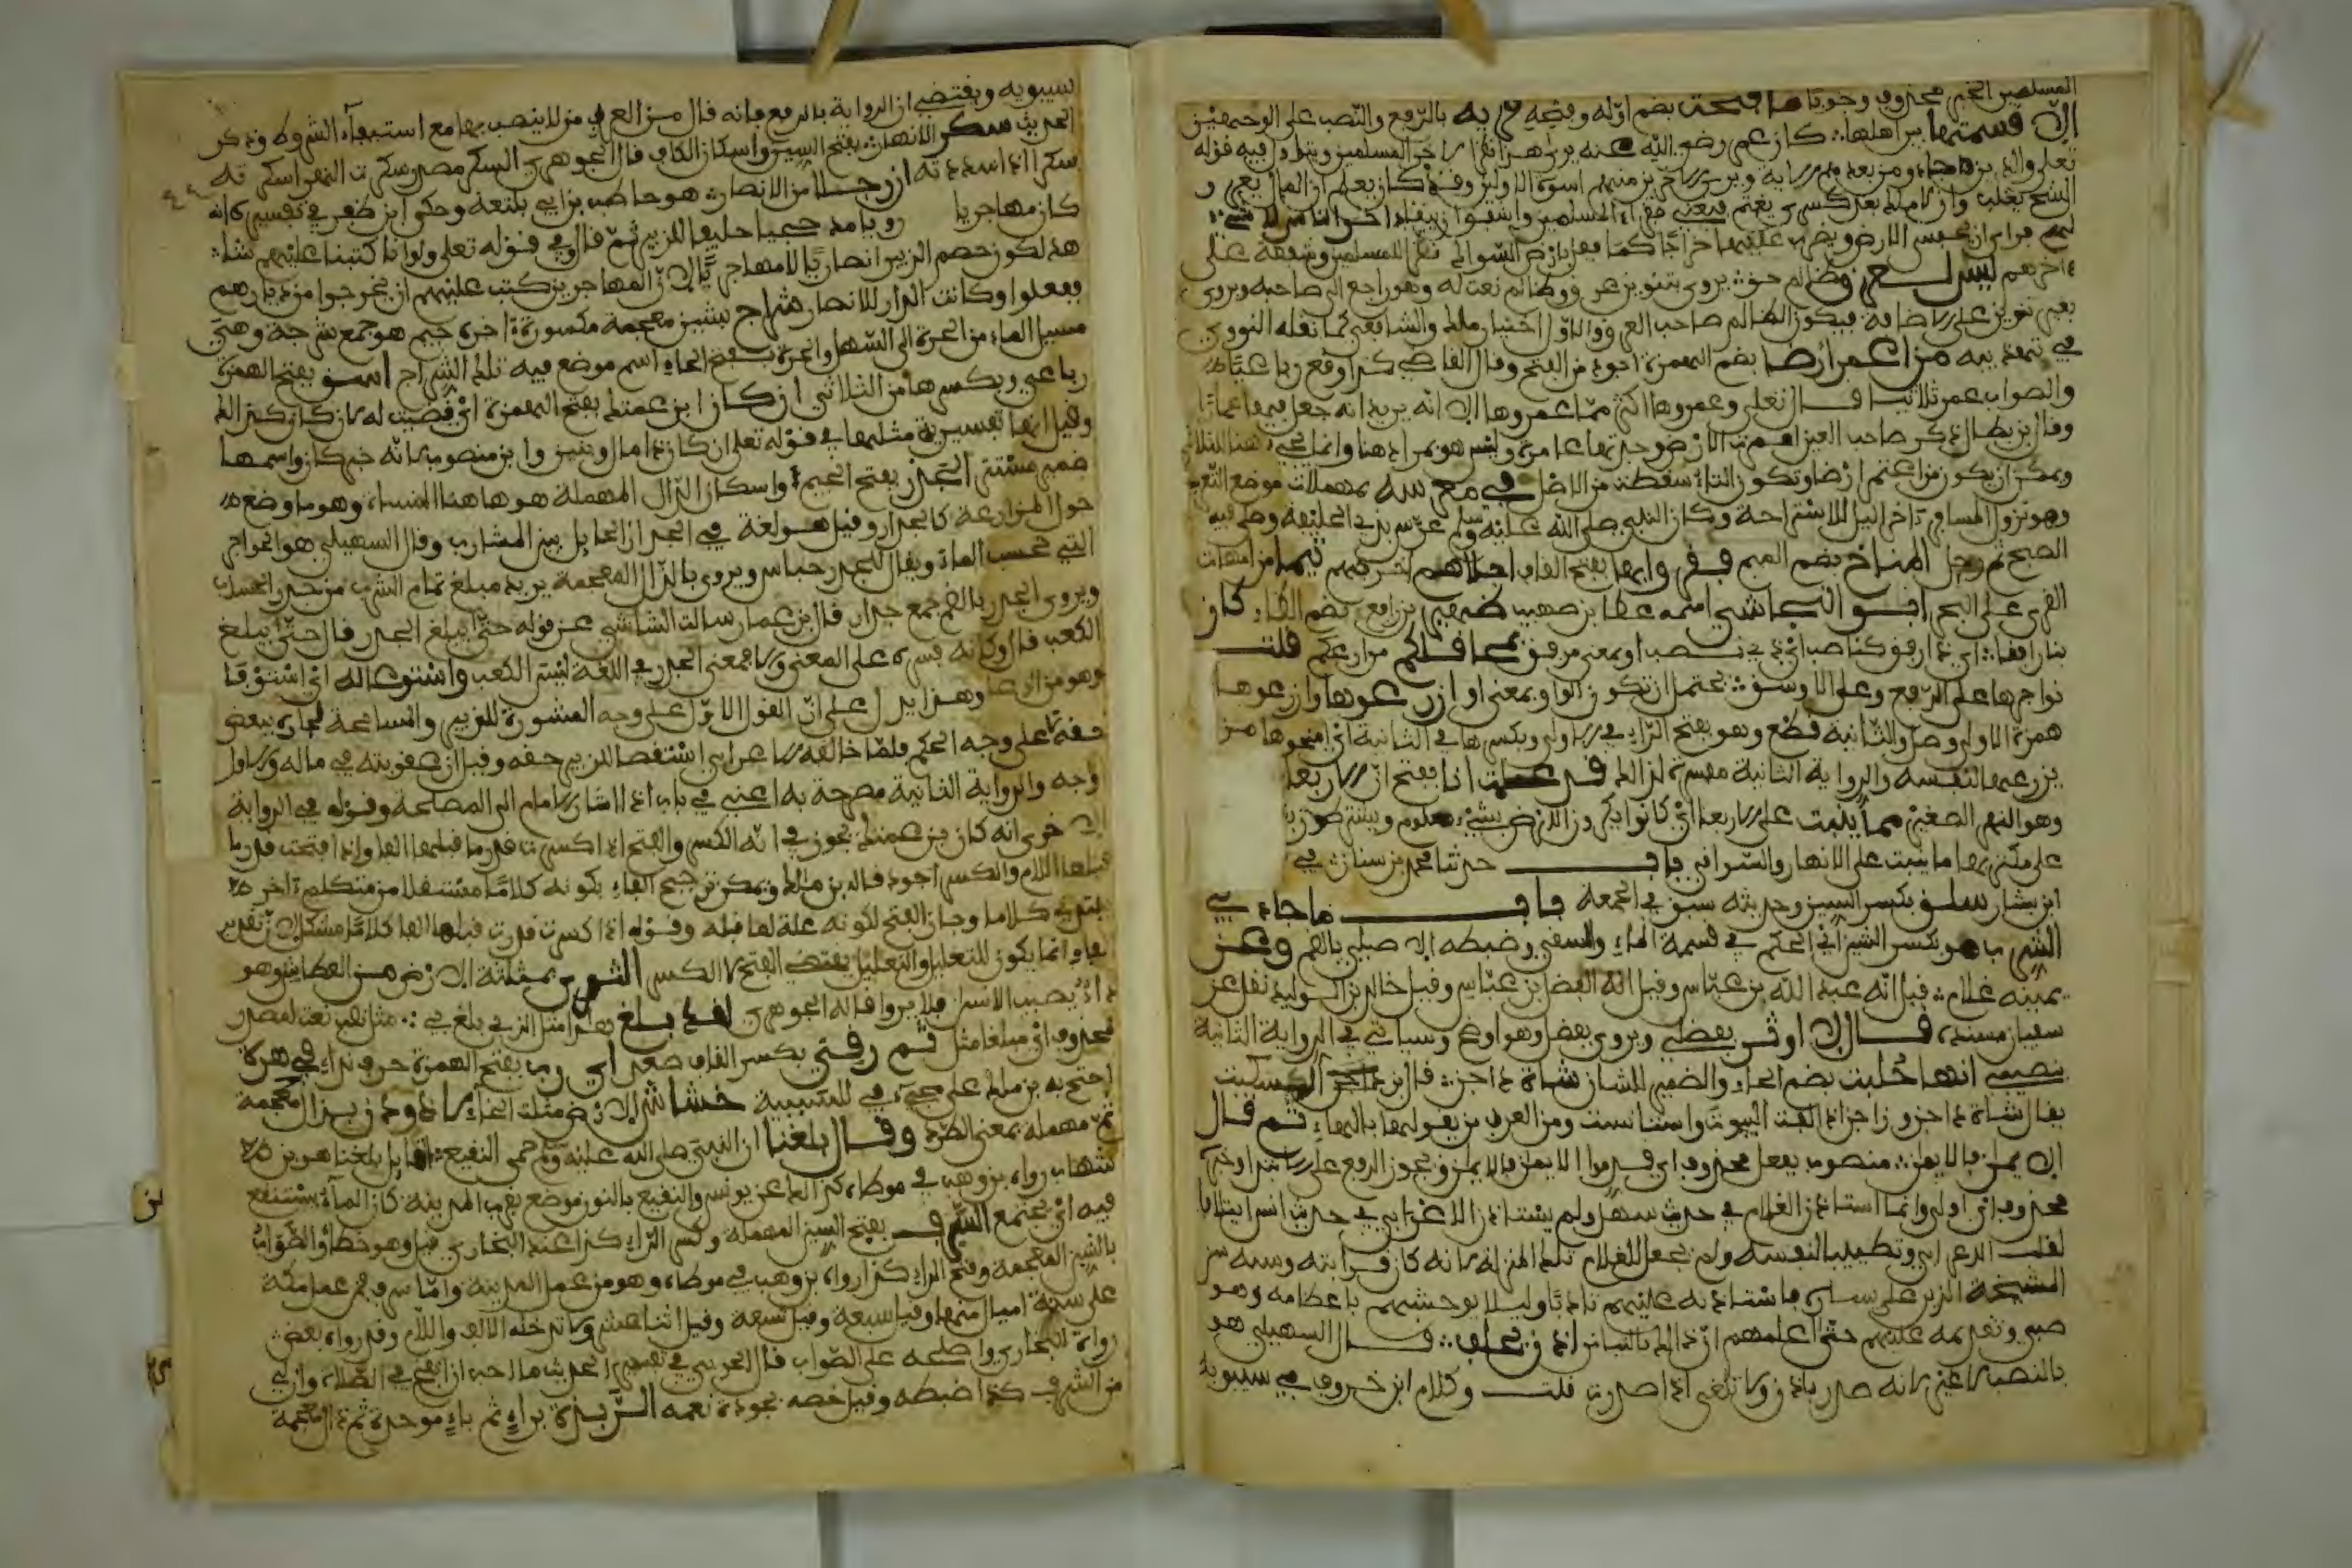 المسلمين الخبر محذوف وجوبا ما فتحت بضم اوله وفتحه قرية بالرفع والنصب على الوجهين
الا قسمتها بين اهلها كان عمر رضي الله عنه يرى هذا نظرا لاخر المسلمين ويتاول فيه قوله
تعلى والذين جاءو من بعدهم الاية ويرى للاخرين منهم اسوة الاولين وقد كان يعلم ان المال يعز و
الشح يغلب وان لا ملك بعد كسرى يغنم فيغنى فقراء المسلمين واشفق ان يبقى اخر الناس لا شيء
لهم فراى ان يحبس الارض ويضرب عليها خراجا كما فعل بارض السواد نظرا للمسلمين وشفقة على
اخرهم ليس لعرق ظالم حق يروى بتنوين عرق وظالم نعت له وهو راجع الى صاحبه ويروى
بغير تنوين على الاضافة فيكون الظالم صاحب العرق والاول اختيار ملك والشافعي كما نقله النووي
في تهذيبه من اعمر ارضا بضم الهمزة اجود من الفتح وقال القاضي كذا وقع رباعيا
والصواب عمر ثلاثيا قال تعلى وعمروها اكثر مما عمروها الا انه يريد انه جعل فيها عمارا
وقال ابن بطال ذكر صاحب العين اعمرت الارض وجدتها عامرة وليس هو بمراد هنا وانما يجيء هنا الثلاثي
ويمكن ان يكون من اعتمر ارضا وتكون التاء سقطت من الاصل في معرسه بمهملات موضع التعريس
وهو نزول المسافر اخر الليل للاستراحة وكان النبي صلى الله عليه وسلم عرس بذي الحليفة وصلى فيه
الصبح ثم رحل المناخ بضم الميم اجلاهم اخرجهم تيما من امهات
القرى على البحر ابو النجاشي اسمه عطا بن صهيب ظهير بن رافع بضم الظاء كان
بنا رافقا اي ذا رفق كناصب اي ذي نصب او بمعنى مرفق بمحاقلكم مزارعكم قلت
نواجرها على الربع وعلى الاوسق يحتمل ان تكون الواو بمعنى او ازرعوها او ازرعوها
همزة الاولى وصل والثانية قطع وهو بفتح الراء في الاولى وبكسرها في الثانية اي امنحوها من
يزرعها لنفسه والرواية الثانية مفسرة لذلك قد علمت انا بفتح ان الاربعا
وهو النهر الصغير مما ينبت على الاربعا اي كانوا يكرون الارض بشيء معلوم ويشترطون
على مكتريها ما ينبت على الانهار والسواقي باب حدثنا محمد بن سنان في
ابن بشار سلق بكسر السين وحديثه سبق في الجمعة باب ما جاء في
الشرب هو بكسر الشين اي الحكم في قسمة الماء والسقي وضبطه الاصيلي بالضم وعن
يمينه غلام قيل انه عبد الله بن عباس وقيل انه الفضل بن عباس وقيل خالد بن الوليد نقل عن
سفيان مسنده قال لاوثر بفضلي ويروى بفضل وهو اوضح وسياتي في الرواية الثانية
بنصيبي انها حلبت بضم الحاء والضمير للشان شاة داجن قال ابن السكيت
يقال شاة داجن وراجن اذا الفت البيوت واستانست ومن العرب من يقولها بالهاء ثم قال
الايمن فالايمن منصوب بفعل محذوف اي قدموا الايمن فالايمن ويجوز الرفع على الابتدا وخبره
محذوف اي اولى وانما استاذن الغلام في حديث سهل ولم يستاذن الاعرابي في حديث انس ايتلافا
لقلب الاعرابي وتطييبا لنفسه ولم يجعل للغلام تلك المنزلة لانه كان قرابته وسنه دون
المشيخة الذين على يساره فاستاذنه عليهم تادبا وليلا يوحشهم باعطائه وهو
صبي وتقديمه عليهم حتى اعلمهم ان ذلك بالتيامن اذن يحلف قال السهيلي هو
بالنصب لا غير لانه صدر باذن ولا تلغى اذا صدرت قلت وكلام ابن خروف في سيبويه
سيبويه ويقتضي ان الرواية بالرفع فانه قال من العرب من لا ينصب بها مع استيفاء الشروط وذكر
الحديث سكر الانهار بفتح السين واسكان الكاف قال الجوهري السكر مصدر سكرت النهر اسكره
سكرا اذا سددته ان رجلا من الانصار هو حاطب بن ابي بلتعة وحكى ابن ظفر في تفسيره انه
كان مهاجريا حليف الزبير ثم قال وفي قوله تعلى ولو انا كتبنا عليهم شاهد
هذا لكون خصم الزبير انصاريا لا مهاجريا لان المهاجرين كتب عليهم ان يخرجوا من ديارهم
ففعلوا وكانت الدار للانصار شراج بشين معجمة مكسورة اخره جيم هو جمع شرجة وهي
مسيل الماء من الحرة الى السهل والحرة بفتح الحاء اسم موضع فيه تلك الشراج اسق بفتح الهمزة
رباعي وبكسرها من الثلاثي ان كان ابن عمتك بفتح الهمزة اي قضيت له لان كان كذلك
وقيل انها تفسيرية مثلها في قوله تعلى ان كان ذا مال وبنين وابن منصوب لانه خبر كان واسمها
ضمير مستتر الجدر بفتح الجيم واسكان الدال المهملة هو هاهنا المسناة وهو ما وضع
حول المزارعة كالجدار وقيل هو لغة في الجدار الحايل بين المشارب وقال السهيلي هو الحواجز
التي تحبس الماء ويقال للجدر حباس ويروى بالذال المعجمة يريد مبلغ تمام الشرب من جذر الحساب
ويروى الجدر بالضم جمع جدار قال ابن عمار سالت الشاشي عن قوله حتى يبلغ الجدر قال حتى يبلغ
الكعب قال وكانه فسره على المعنى والا فمعنى الجدر في اللغة ليس الكعب واستوعى له اي استوفى
وهو من الوعا وهذا يدل على ان القول الاول على وجه المشورة للزبير والمسامحة لجاره ببعض
حقه لا على وجه الحكم فلما خالفه الاعرابي استقصا للزبير حقه وقيل ان عقوبته في ماله والاول
اوجه والرواية الثانية مصرحة به اعني في باب اذا اشار الامام الى المصالحة وقوله في الرواية
الاخرى انه كان ابن عمتك يجوز في انه الكسر والفتح اذا كسرت قدر ما قبلها الفا واذا فتحت قدر ما
قبلها اللام والكسر اجود قاله ابن مالك ويمكن ترجيح الفاء بكونه كلاما مستقلا من متكلم اخر
ابتدى كلاما وجاز الفتح لكونه علة لما قبله وقوله اذا كسرت قدرت قبلها الفا كلام مشكل لان تقدير
الفاء انما يكون للتعليل والتعليل يقتضي الفتح لا الكسر الثرى بمثلثة الارض من العطش وهو
داء يصيب الابل فلا تروا قاله الجوهري لقد بلغ هذا مثل الذي بلغ بي مثل نعت لمصدر
محذوف اي مبلغا مثل ثم رقي بكسر القاف صعد اي رب بفتح الهمزة حرف نداء في هرة
احتج به ابن مالك على مجيء في للسببية خشاش الارض مثلث الخاء لاذودن بذال معجمة
ثم مهملة بمعنى الطرد وقال بلغنا ان النبي صلى الله عليه وسلم حمى النقيع القايل بلغنا هو ابن
شهاب رواه ابن وهب في موطاه كذلك عن يونس والنقيع بالنون موضع بقرب المدينة كان الماء يستنقع
فيه اي يجتمع السرف بفتح السين المهملة وكسر الراء كذا عند البخاري قيل وهو خطا والصواب
بالشين المعجمة وفتح الراء كذا رواه ابن وهب في موطاه وهو من عمل المدينة واما سرف فمن عمل مكة
على ستة اميال منها وقيل سبعة وقيل تسعة وقيل اثنا عشر ولا تدخله الالف واللام وقد رواه بعض
رواة البخاري واصلحه على الصواب قال الحربي في تفسير الحديث ما احب ان انفخ في الصلاة وان لي
ممر الشرف كذا ضبطه وقيل خصه بجودة نعمه الربذة براء ثم باء موحدة ثم ذال معجمة